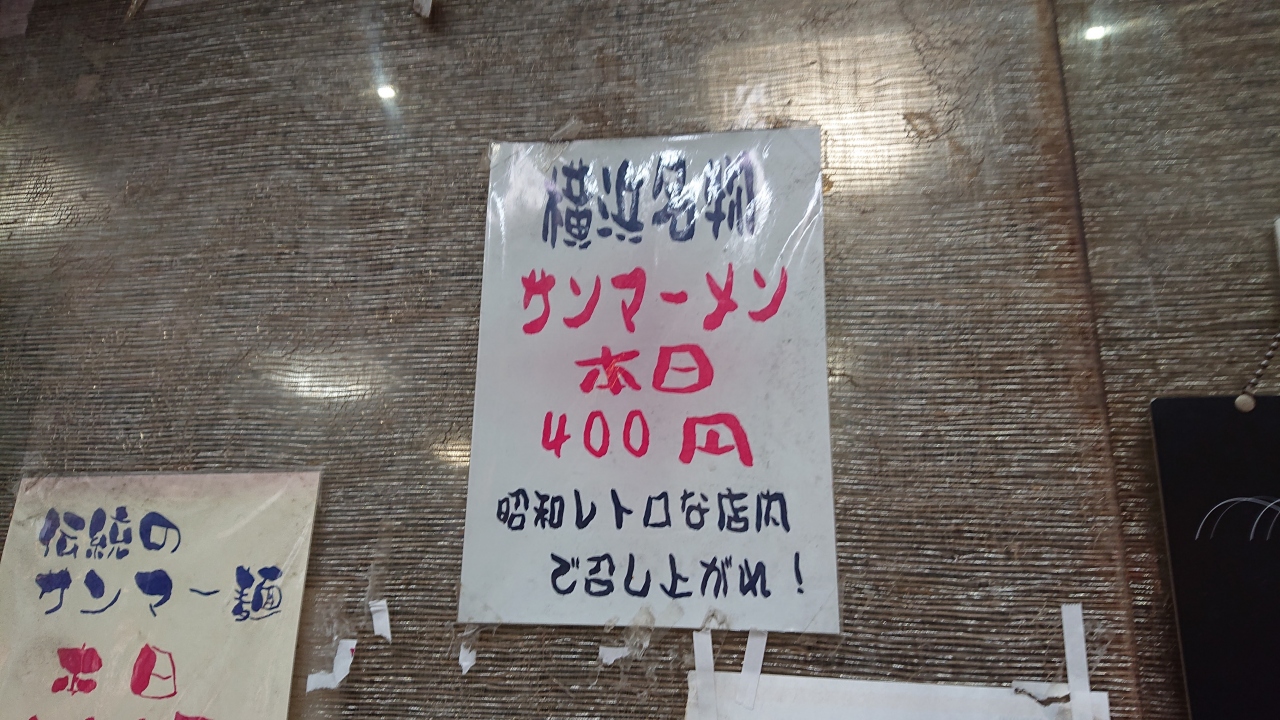 横浜名物
サンマーメン
本日
400円
昭和レトロな店内
で召し上がれ!
伝統の
サンマー麺
本日